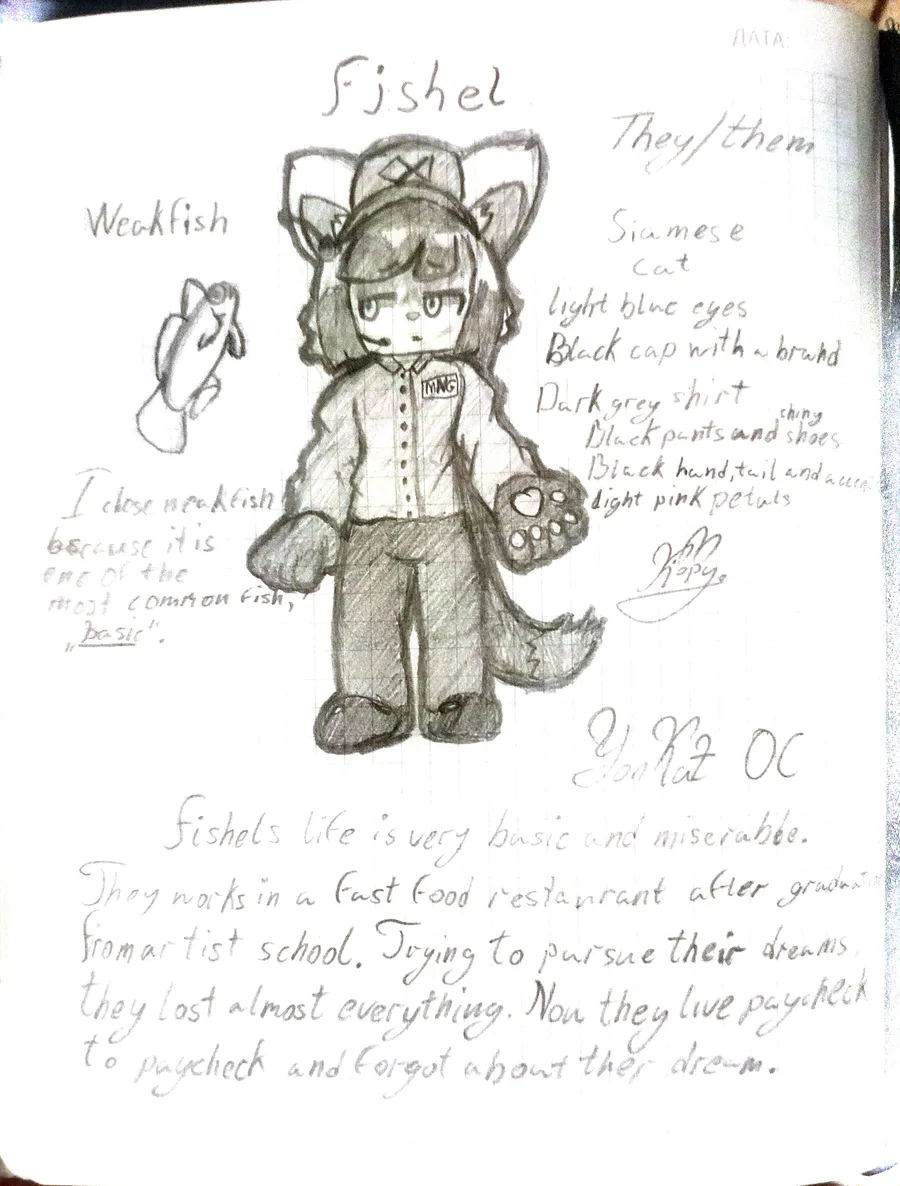 ДАТА:
Fishel
They/them
Weakfish
Siamese
cat
light blue eyes
Black cap with a brand
Dark grey shirt
shiny
Black pants and shoes
Black hand, tail and
light pink petals
MNG
I chose weakfish
because it is
one of the
most common fish,
„basic".
YonKaZ OC
Fishels life is very basic and miserable.
They works in a fast food restaurant after
from artist school. Trying to pursue their dreams,
they lost almost everything. Now they live paycheck
to paycheck and forgot about ther dream.